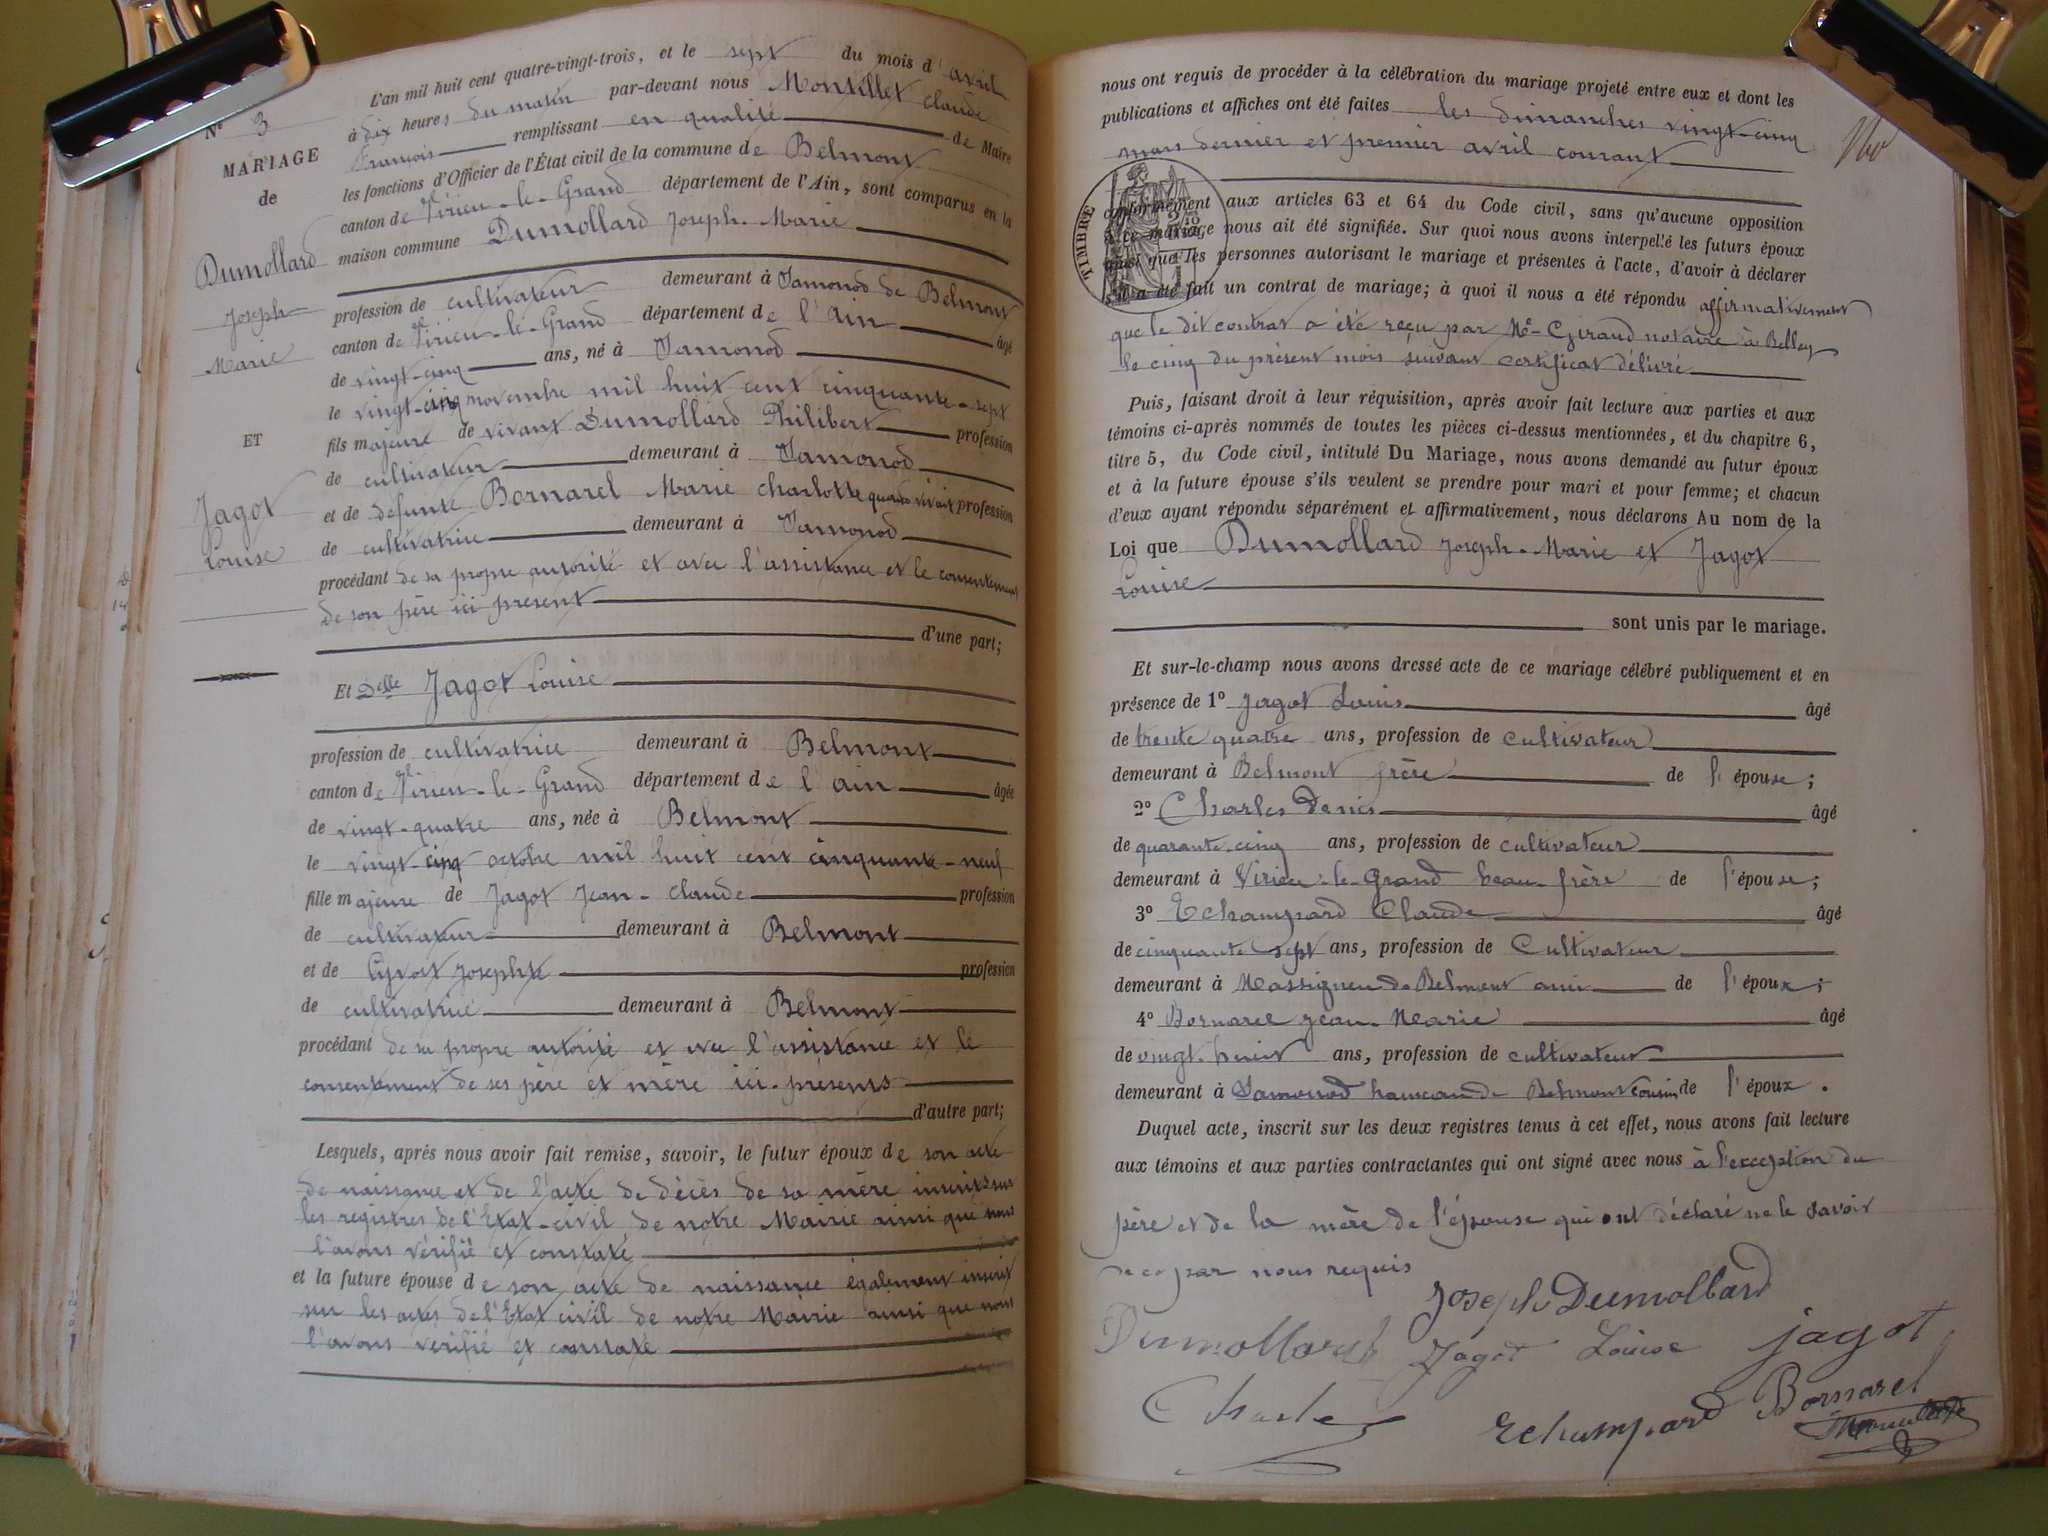 L'an mil huit cent quatre-vingt-trois, et le sept du mois d'avril
à dix heures du matin par-devant nous Montillet Claude
François remplissant en qualité de Maire
les fonctions d'Officier de l'État civil de la commune de Belmont
canton de Virieu-le-Grand département de l'Ain, sont comparus en la
maison commune Dumollard Joseph-Marie
profession de cultivateur demeurant à Samonod de Belmont
canton de Virieu-le-Grand département de l'ain âgé
de vingt-cinq ans, né à Samonod
le vingt-cinq novembre mil huit cent cinquante-sept
fils majeure de vivant Dumollard Philibert profession
de cultivateur demeurant à Samonod
et de defunte Bornarel Marie Charlotte quand vivait profession
de cultivatrice demeurant à Samonod
procédant de sa propre autorité et avec l'assistance et le consentement
de son père ici présent
d'une part;
Et Delle Jagot Louise
profession de cultivatrice demeurant à Belmont
canton de Virieu-le-Grand département de l'ain âgée
de vingt-quatre ans, née à Belmont
le vingt-cinq octobre mil huit cent cinquante-neuf
fille majeure de Jagot Jean-Claude profession
de cultivateur demeurant à Belmont
et de Josephte profession
de cultivatrice demeurant à Belmont
procédant de sa propre autorité et avec l'assistance et le
consentement de ses père et mère ici-présents
d'autre part;
Lesquels, après nous avoir fait remise, savoir, le futur époux de son acte
de naissance et de l'acte de décès de sa mère inscrits sur
les registres de l'Etat-civil de notre Mairie ainsi que nous
l'avons vérifié et constaté
et la future épouse de son acte de naissance également inscrit
sur les actes de l'Etat civil de notre Mairie ainsi que nous
l'avons vérifié et constaté
N° 3
MARIAGE
de
Dumollard
Joseph
Marie
ET
Jagot
Louise
nous ont requis de procéder à la célébration du mariage projeté entre eux et dont les
publications et affiches ont été faites les dimanches vingt-cinq
mars dernier et premier avril courant
TIMBRE
conformément aux articles 63 et 64 du Code civil, sans qu'aucune opposition
à ce mariage nous ait été signifiée. Sur quoi nous avons interpellé les futurs époux
ainsi que les personnes autorisant le mariage et présentes à l'acte, d'avoir à déclarer
s'il a été fait un contrat de mariage; à quoi il nous a été répondu affirmativement
que le dit contrat a été reçu par Me Giraud notaire à Belley
le cinq du présent mois suivant certificat délivré
Puis, faisant droit à leur réquisition, après avoir fait lecture aux parties et aux
témoins ci-après nommés de toutes les pièces ci-dessus mentionnées, et du chapitre 6,
titre 5, du Code civil, intitulé Du Mariage, nous avons demandé au futur époux
et à la future épouse s'ils veulent se prendre pour mari et pour femme; et chacun
d'eux ayant répondu séparément et affirmativement, nous déclarons Au nom de la
Loi que Dumollard Joseph-Marie et Jagot
Louise
sont unis par le mariage.
Et sur-le-champ nous avons dressé acte de ce mariage célébré publiquement et en
présence de 1° Jagot Louis âgé
de trente quatre ans, profession de cultivateur
demeurant à Belmont frère de l'épouse;
2° Charles Denis âgé
de quarante-cinq ans, profession de cultivateur
demeurant à Virieu-le-Grand beau-frère de l'épouse;
3° Echampard Claude âgé
de cinquante sept ans, profession de Cultivateur
demeurant à Massignieu de Belmont ami de l'époux;
4° Bornarel Jean-Marie âgé
de vingt-huit ans, profession de cultivateur
demeurant à Samonod hameau de Belmont cousin de l'époux.
Duquel acte, inscrit sur les deux registres tenus à cet effet, nous avons fait lecture
aux témoins et aux parties contractantes qui ont signé avec nous à l'exception du
père et de la mère de l'épouse qui ont déclaré ne le savoir
de ce par nous requis
Joseph Dumollard
Dumollard Jagot Louise jagot
Charles Echampard Bornarel